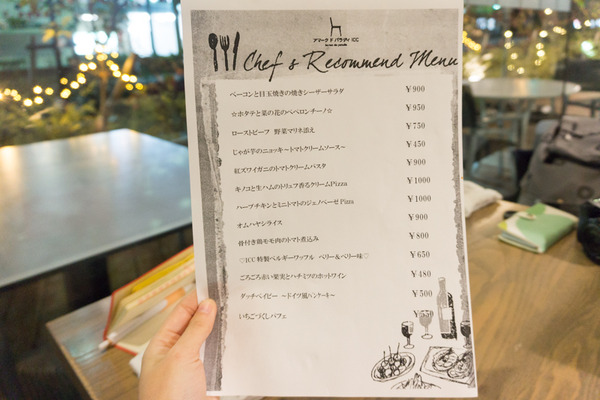 アマーク ド パラディ ICC
Chef's Recommend Menu
ベーコンと目玉焼きの焼きシーザーサラダ ￥900
☆ホタテと菜の花のペペロンチーノ☆ ￥950
ローストビーフ 野菜マリネ添え ￥750
じゃが芋のニョッキ～トマトクリームソース～ ￥450
紅ズワイガニのトマトクリームパスタ ￥900
キノコと生ハムのトリュフ香るクリームPizza ￥1000
ハーブチキンとミニトマトのジェノベーゼ Pizza ￥1000
オムハヤシライス ￥900
骨付き鶏モモ肉のトマト煮込み ￥800
♡ICC 特製ベルギーワッフル ベリー＆ベリー味♡ ￥650
ごろごろ赤い果実とハチミツのホットワイン ￥480
ダッチベイビー ～ドイツ風パンケーキ～ ￥500
いちごづくしパフェ ￥550